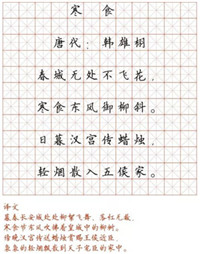 寒食
唐代：韩雄
春城无处不飞花，
寒食东风御柳斜。
日暮汉宫传蜡烛，
轻烟散入五侯家。
译文
暮春长安城处处柳絮飞舞、落红无数，
寒食节东风吹拂着皇城中的柳树。
傍晚汉宫传送蜡烛赏赐王侯近臣，
袅袅的轻烟飘散到天子宠臣的家中。